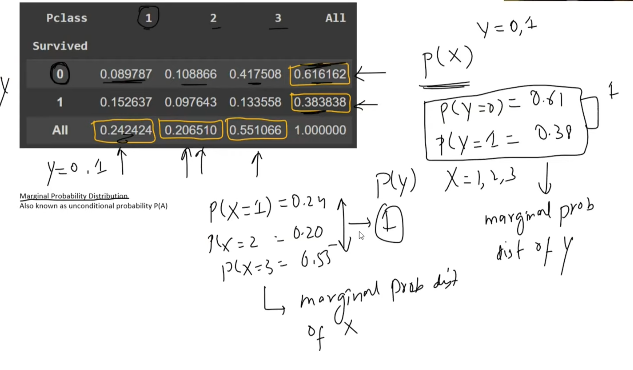 Pclass 1 2 3 All
Survived
0 0.089787 0.108866 0.417508 0.616162
1 0.152637 0.097643 0.133558 0.383838
All 0.242424 0.206510 0.551066 1.000000
Y
Y=0,1
Marginal Probability Distribution
Also known as unconditional probability P(A)
Y=0,1
P(X)
P(Y=0) = 0.61
P(Y=1 = 0.38
1
X=1,2,3
marginal prob
dist of Y
P(Y)
P(X=1) = 0.24
P(X=2 = 0.20
P(X=3 = 0.55
1
marginal prob dist
of X